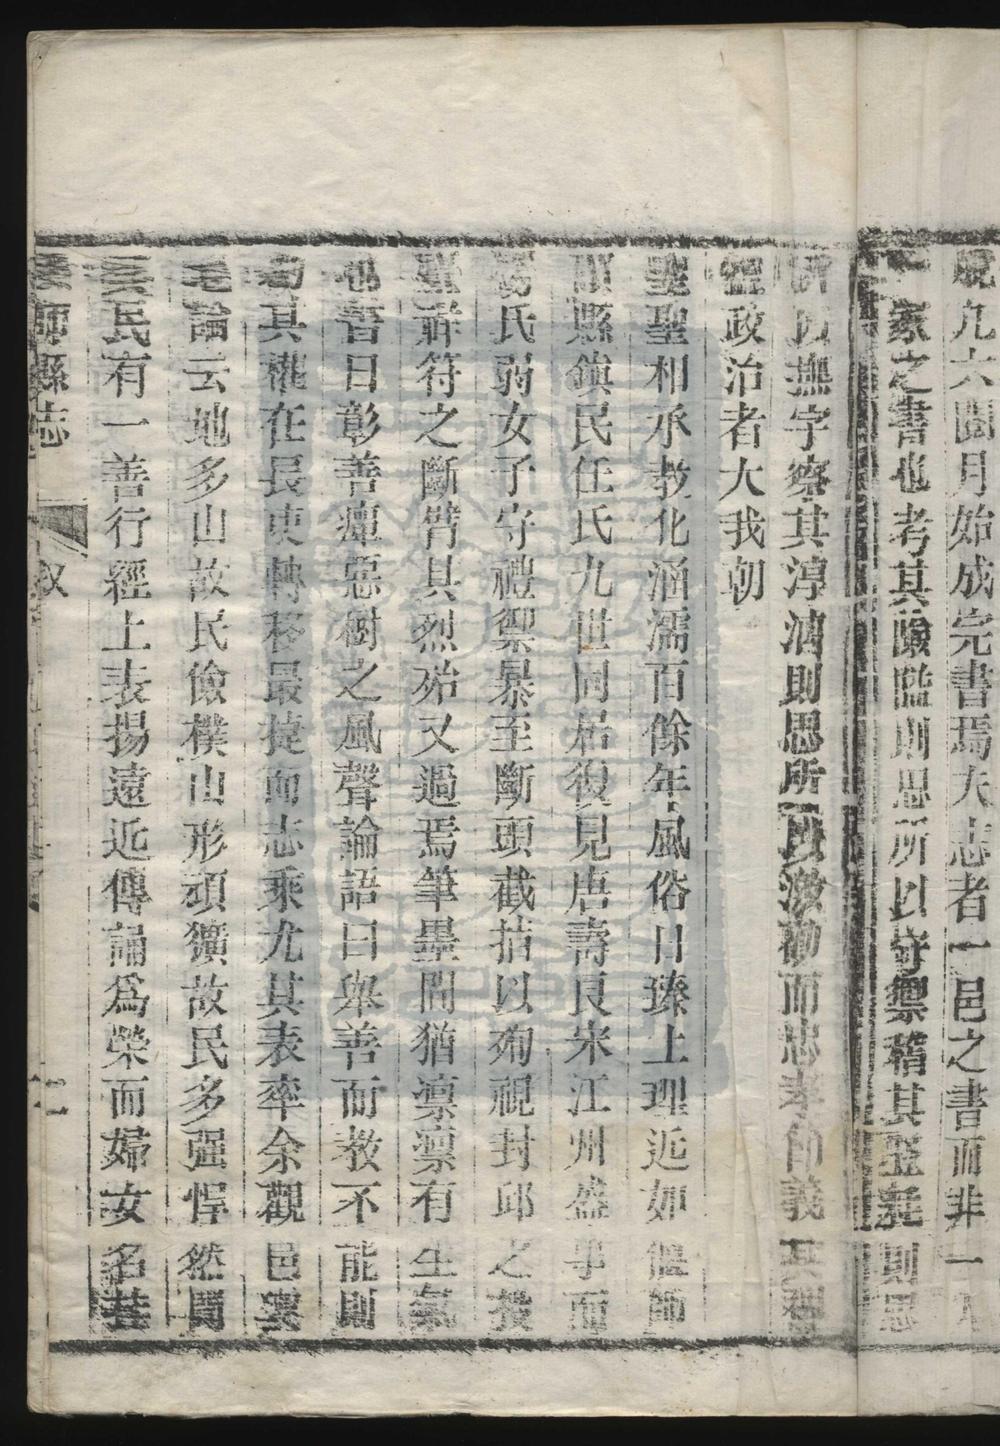 九六閱月始成完書焉夫志者一邑之書而非一人
一家之書也考其險隘則思所以守禦稽其登耗則思
所以撫字察其淳漓則思所以激勸而忠孝節義
政治者大我朝
聖聖相承教化涵濡百餘年風俗日臻上理近如偃師
縣鎮民任氏九世同居復見唐壽良宋江州盛乎而
楊氏弱女子守禮禦暴至斷頭截指以殉視封邱之投
祥符之斷臂其烈殆又過焉筆墨間猶凛凛有生氣
也書曰彰善癉惡樹之風聲論語曰舉善而教不能則
勸其權在長吏轉移最捷而志乘尤其表率余觀邑
論云地多山故民儉樸山形頑獷故民多强悍然
民有一善行經上表揚遠近傳誦爲榮而婦女名
偃師縣志 敘